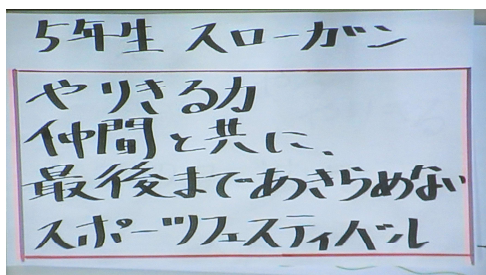 5年生 スローガン
やりきる力
仲間と共に、
最後まであきらめない
スポーツフェスティバル